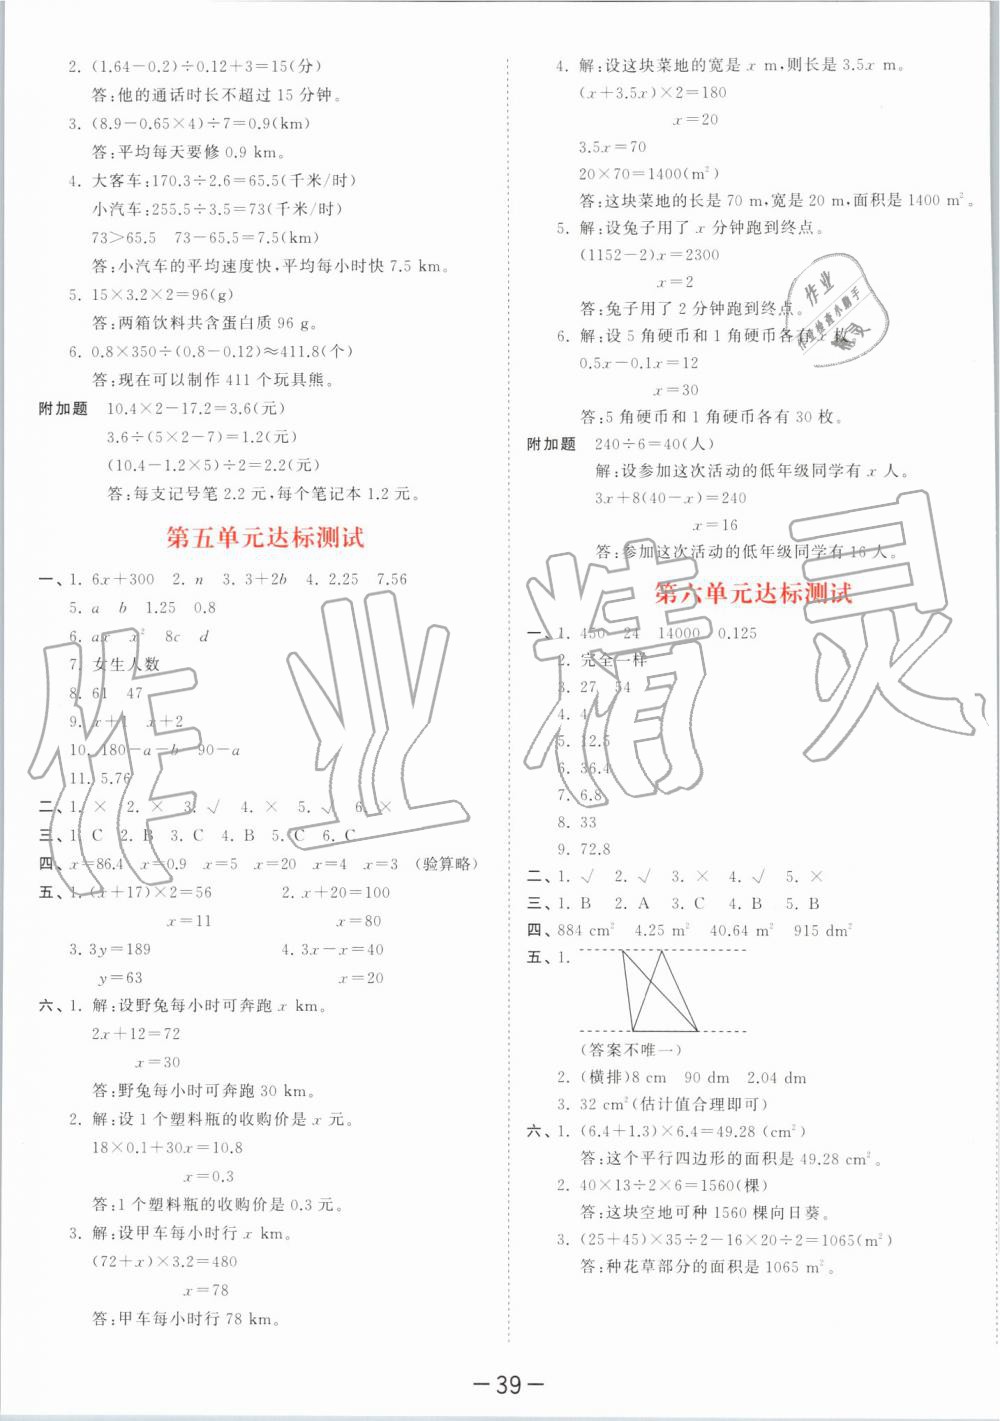 2. (1.64-0.2)÷0.12+3=15(分)
答:他的通话时长不超过 15 分钟。
3. (8.9-0.65×4)÷7=0.9(km)
答:平均每天要修 0.9 km。
4. 大客车:170.3÷2.6=65.5(千米/时)
小汽车:255.5÷3.5=73(千米/时)
73>65.5 73-65.5=7.5(km)
答:小汽车的平均速度快,平均每小时快 7.5 km。
5. 15×3.2×2=96(g)
答:两箱饮料共含蛋白质 96 g。
6. 0.8×350÷(0.8-0.12)≈411.8(个)
答:现在可以制作 411 个玩具熊。
附加题 10.4×2-17.2=3.6(元)
3.6÷(5×2-7)=1.2(元)
(10.4-1.2×5)÷2=2.2(元)
答:每支记号笔 2.2 元,每个笔记本 1.2 元。
第五单元达标测试
一、1. 6x+300 2. n 3. 3+2b 4. 2.25 7.56
5. a b 1.25 0.8
6. ax x² 8c d
7. 女生人数
8. 61 47
9. x+1 x+2
10. 180-a-b 90-a
11. 5.76
二、1. × 2. × 3. √ 4. × 5. √ 6. ×
三、1. C 2. B 3. C 4. B 5. C 6. C
四、x=86.4 x=0.9 x=5 x=20 x=4 x=3 (验算略)
五、1. (x+17)×2=56 2. x+20=100
x=11 x=80
3. 3y=189 4. 3x-x=40
y=63 x=20
六、1. 解:设野兔每小时可奔跑 x km。
2x+12=72
x=30
答:野兔每小时可奔跑 30 km。
2. 解:设 1 个塑料瓶的收购价是 x 元。
18×0.1+30x=10.8
x=0.3
答:1 个塑料瓶的收购价是 0.3 元。
3. 解:设甲车每小时行 x km。
(72+x)×3.2=480
x=78
答:甲车每小时行 78 km。
4. 解:设这块菜地的宽是 x m,则长是 3.5x m。
(x+3.5x)×2=180
x=20
3.5x=70
20×70=1400(m²)
答:这块菜地的长是 70 m,宽是 20 m,面积是 1400 m²。
5. 解:设兔子用了 x 分钟跑到终点。
(1152-2)x=2300
x=2
答:兔子用了 2 分钟跑到终点。
6. 解:设 5 角硬币和 1 角硬币各有 x 枚。
0.5x-0.1x=12
x=30
答:5 角硬币和 1 角硬币各有 30 枚。
附加题 240÷6=40(人)
解:设参加这次活动的低年级同学有 x 人。
3x+8(40-x)=240
x=16
答:参加这次活动的低年级同学有 16 人。
第六单元达标测试
一、1. 450 24 14000 0.125
2. 完全一样
3. 27 54
4. 4
5. 12.5
6. 36.4
7. 6.8
8. 33
9. 72.8
二、1. √ 2. √ 3. × 4. √ 5. ×
三、1. B 2. A 3. C 4. B 5. B
四、884 cm² 4.25 m² 40.64 m² 915 dm²
五、1.
(答案不唯一)
2. (横排)8 cm 90 dm 2.04 dm
3. 32 cm²(估计值合理即可)
六、1. (6.4+1.3)×6.4=49.28(cm²)
答:这个平行四边形的面积是 49.28 cm²。
2. 40×13÷2×6=1560(棵)
答:这块空地可种 1560 棵向日葵。
3. (25+45)×35÷2-16×20÷2=1065(m²)
答:种花草部分的面积是 1065 m²。
作业精灵
作业
作业检查小助手
精灵
— 39 —